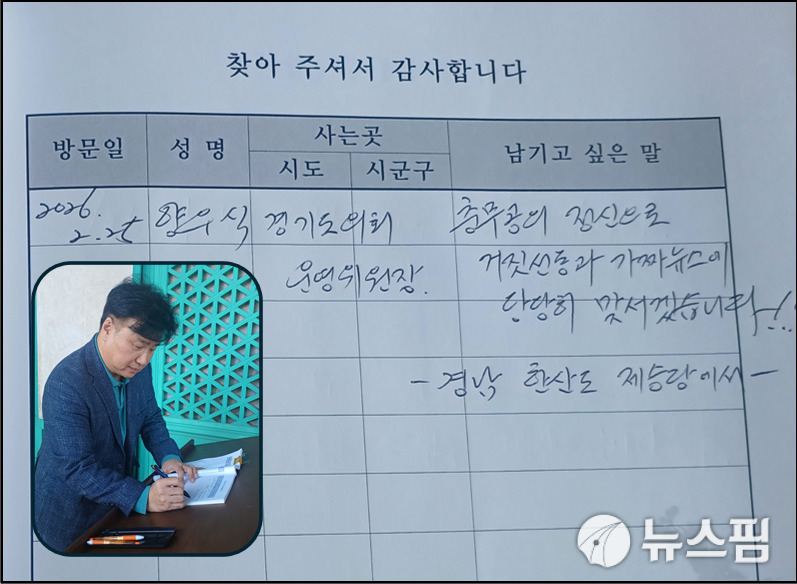 찾아 주셔서 감사합니다
방문일 성 명 사는곳 남기고 싶은 말
시도 시군구
2026. 양우식 경기도의회 충무공의 정신으로
2.25 운영위원장. 거짓선동과 가짜뉴스에
당당히 맞서겠습니다!!
- 경남 한산도 제승당에서 -
뉴스핌